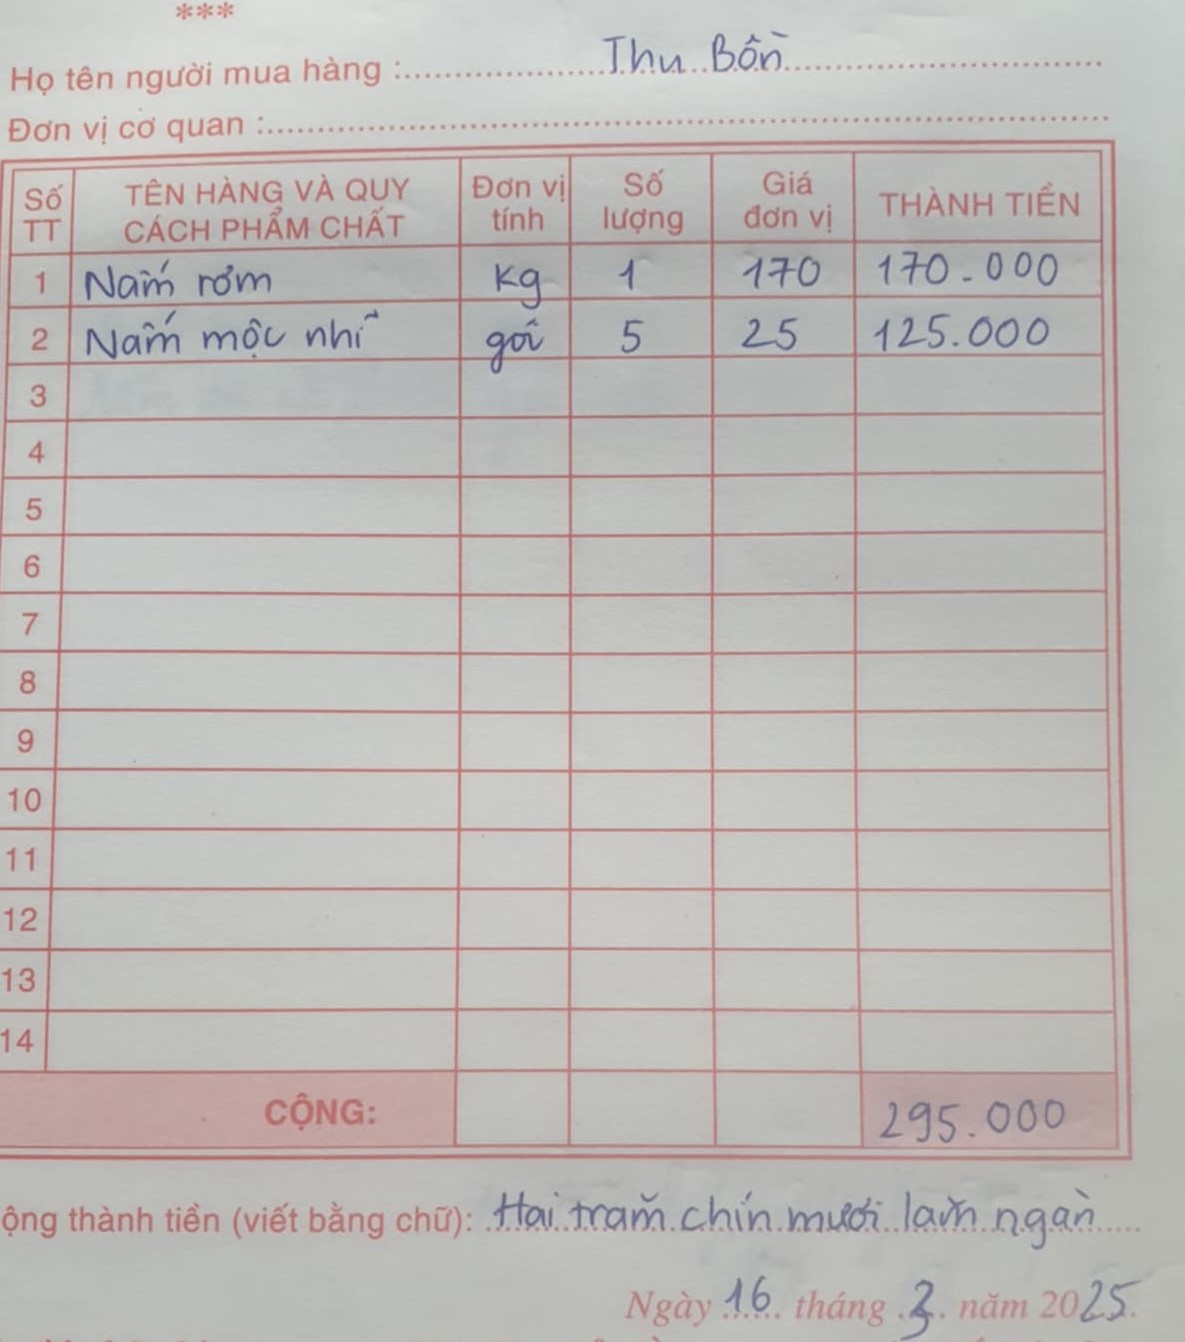 ***
Họ tên người mua hàng : Thu Bồn
Đơn vị cơ quan :
Số TT TÊN HÀNG VÀ QUY CÁCH PHẨM CHẤT Đơn vị tính Số lượng Giá đơn vị THÀNH TIỀN
1 Nấm rơm Kg 1 170 170.000
2 Nấm mộc nhĩ gói 5 25 125.000
3
4
5
6
7
8
9
10
11
12
13
14
CỘNG: 295.000
ộng thành tiền (viết bằng chữ): Hai trăm chín mươi lăm ngàn
Ngày 16 tháng 3 năm 2025